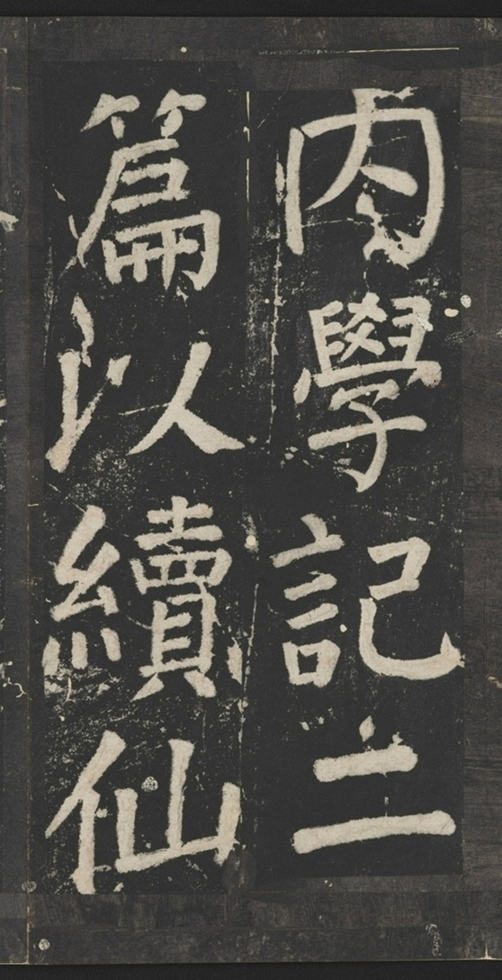 内學記二
篇以續仙